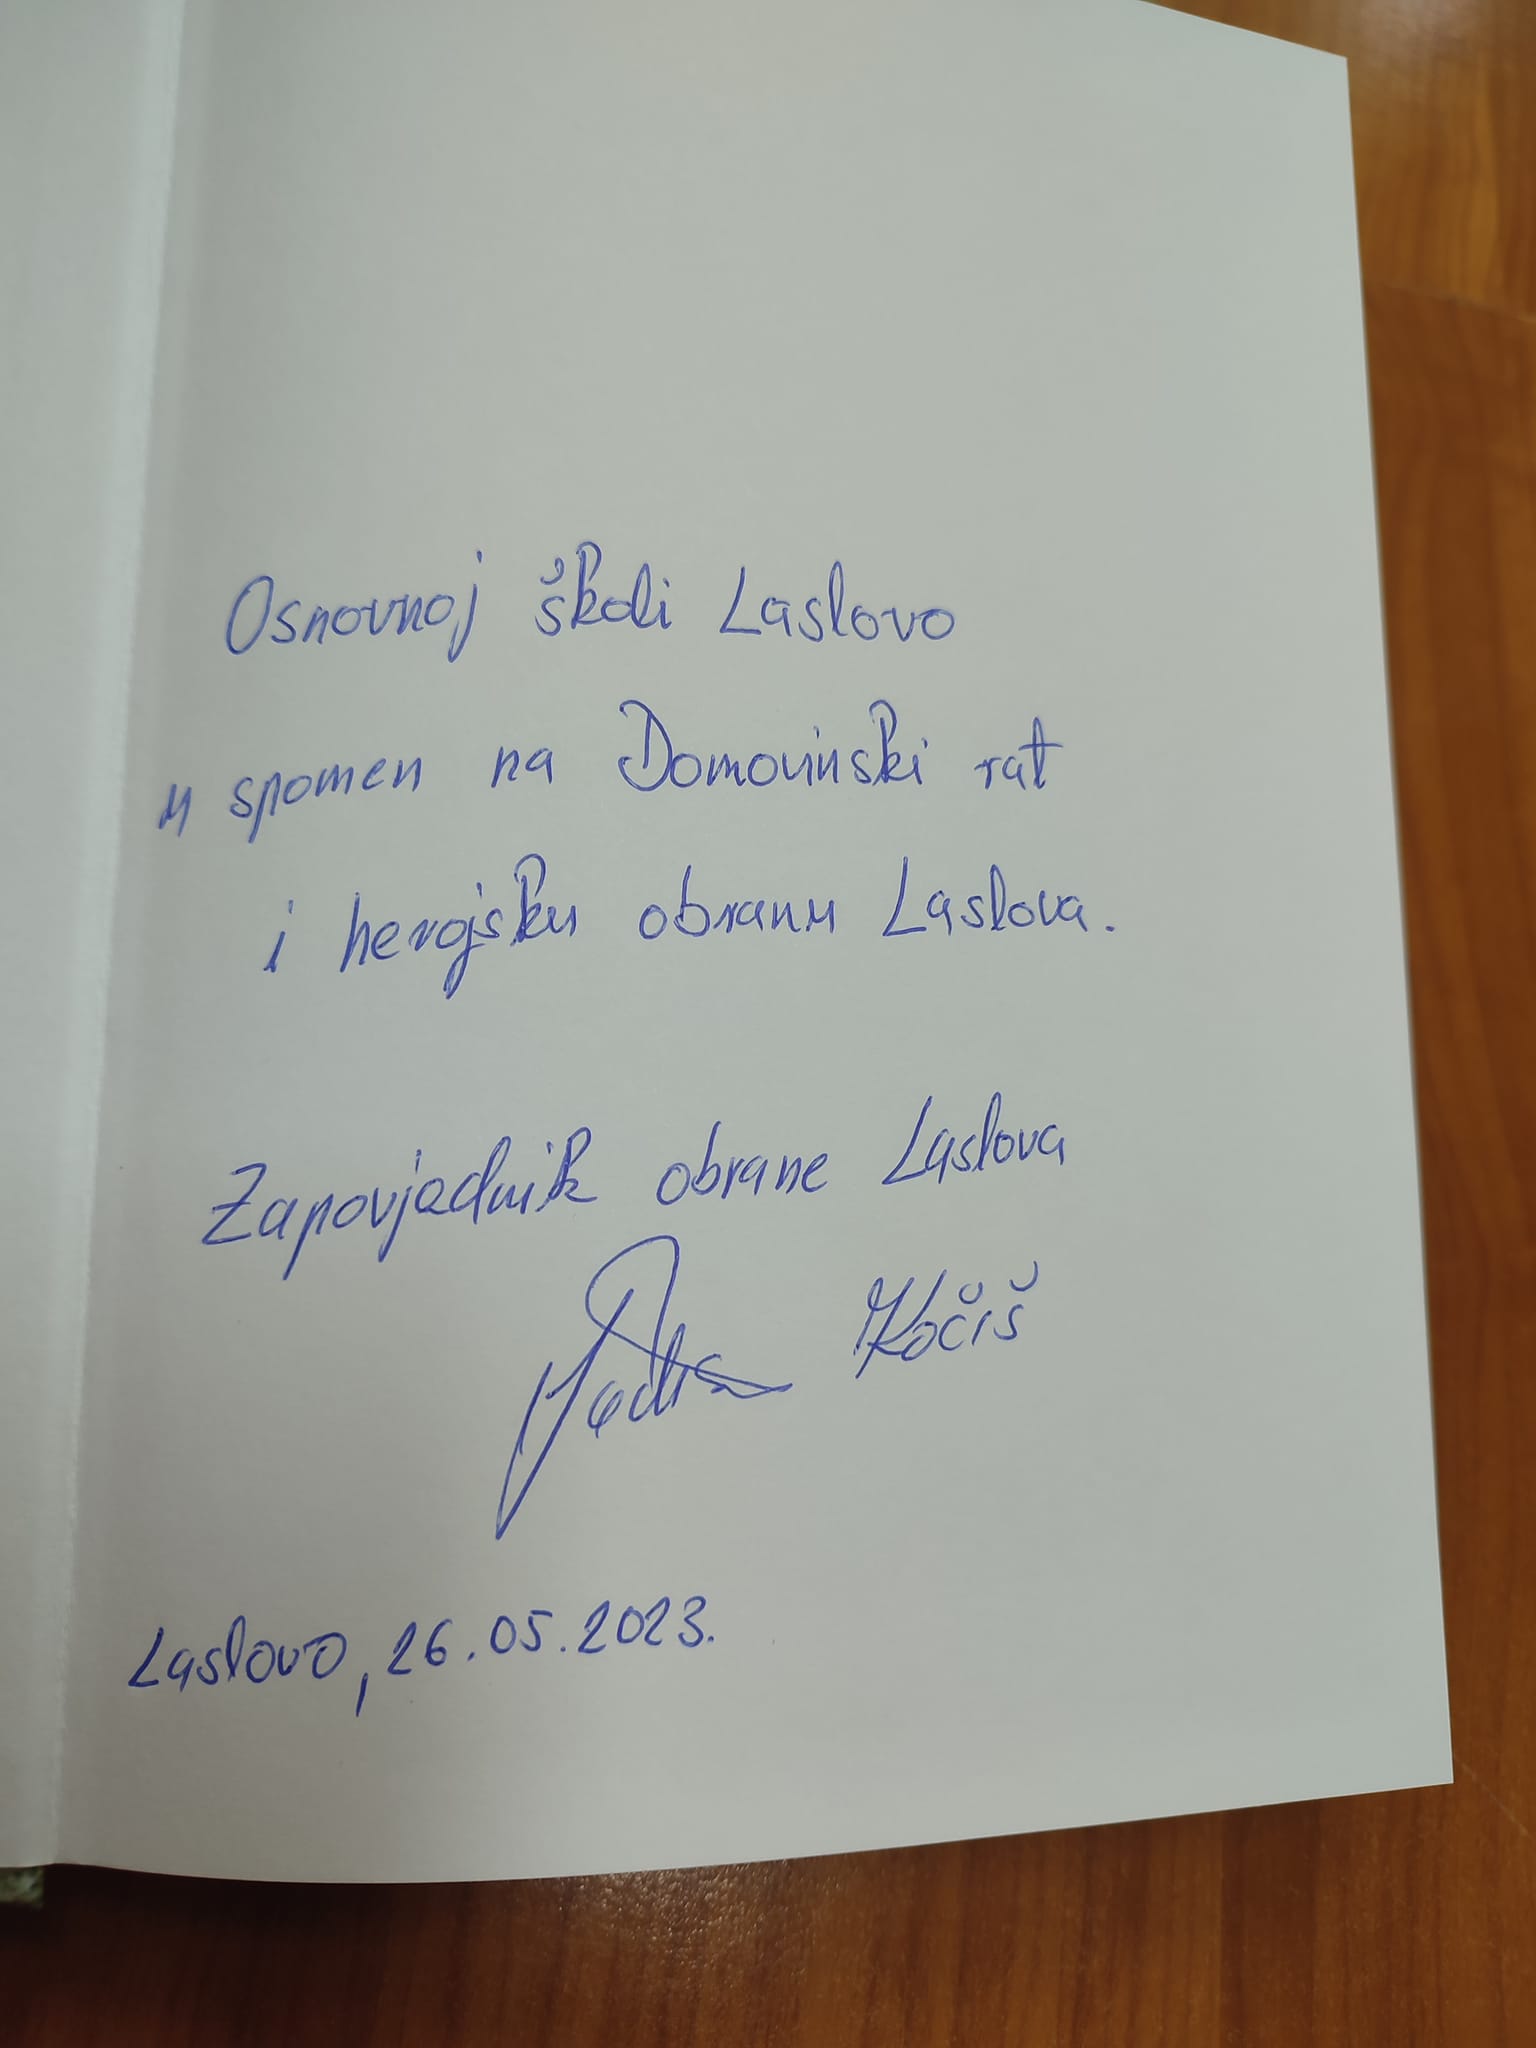 Osnovnoj školi Laslovo
u spomen na Domovinski rat
i herojsku obranu Laslova.
Zapovjednik obrane Laslova
Kočiš
Laslovo, 26.05.2023.